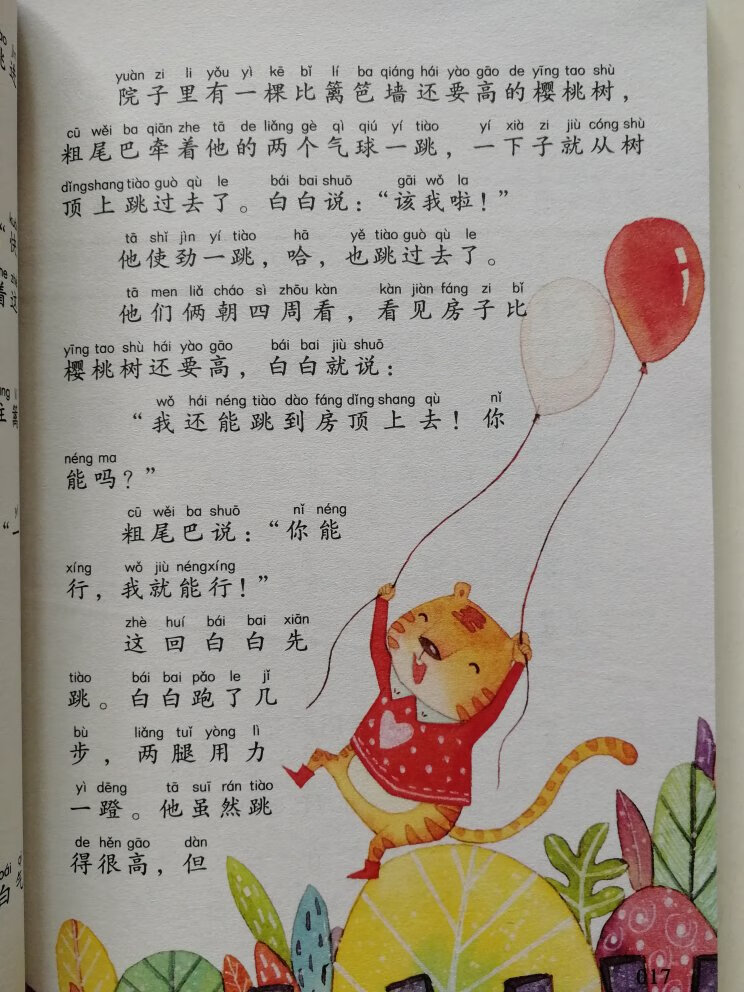 yuàn zi li yǒu yì kē bǐ lí ba qiáng hái yào gāo de yīng tao shù
院子里有一棵比篱笆墙还要高的樱桃树，
cū wěi ba qiān zhe tā de liǎng gè qì qiú yí tiào yí xià zi jiù cóng shù
粗尾巴牵着他的两个气球一跳，一下子就从树
dǐng shang tiào guò qù le bái bai shuō gāi wǒ la
顶上跳过去了。白白说：“该我啦！”
tā shǐ jìn yí tiào hā yě tiào guò qù le
他使劲一跳，哈，也跳过去了。
tā men liǎ cháo sì zhōu kàn kàn jiàn fáng zi bǐ
他们俩朝四周看，看见房子比
yīng tao shù hái yào gāo bái bai jiù shuō
樱桃树还要高，白白就说：
wǒ hái néng tiào dào fáng dǐng shang qù nǐ
“我还能跳到房顶上去！你
néng ma
能吗？”
cū wěi ba shuō nǐ néng
粗尾巴说：“你能
xíng wǒ jiù néng xíng
行，我就能行！”
zhè huí bái bai xiān
这回白白先
tiào bái bai pǎo le jǐ
跳。白白跑了几
bù liǎng tuǐ yòng lì
步，两腿用力
yì dēng tā suī rán tiào
一蹬。他虽然跳
de hěn gāo dàn
得很高，但
017